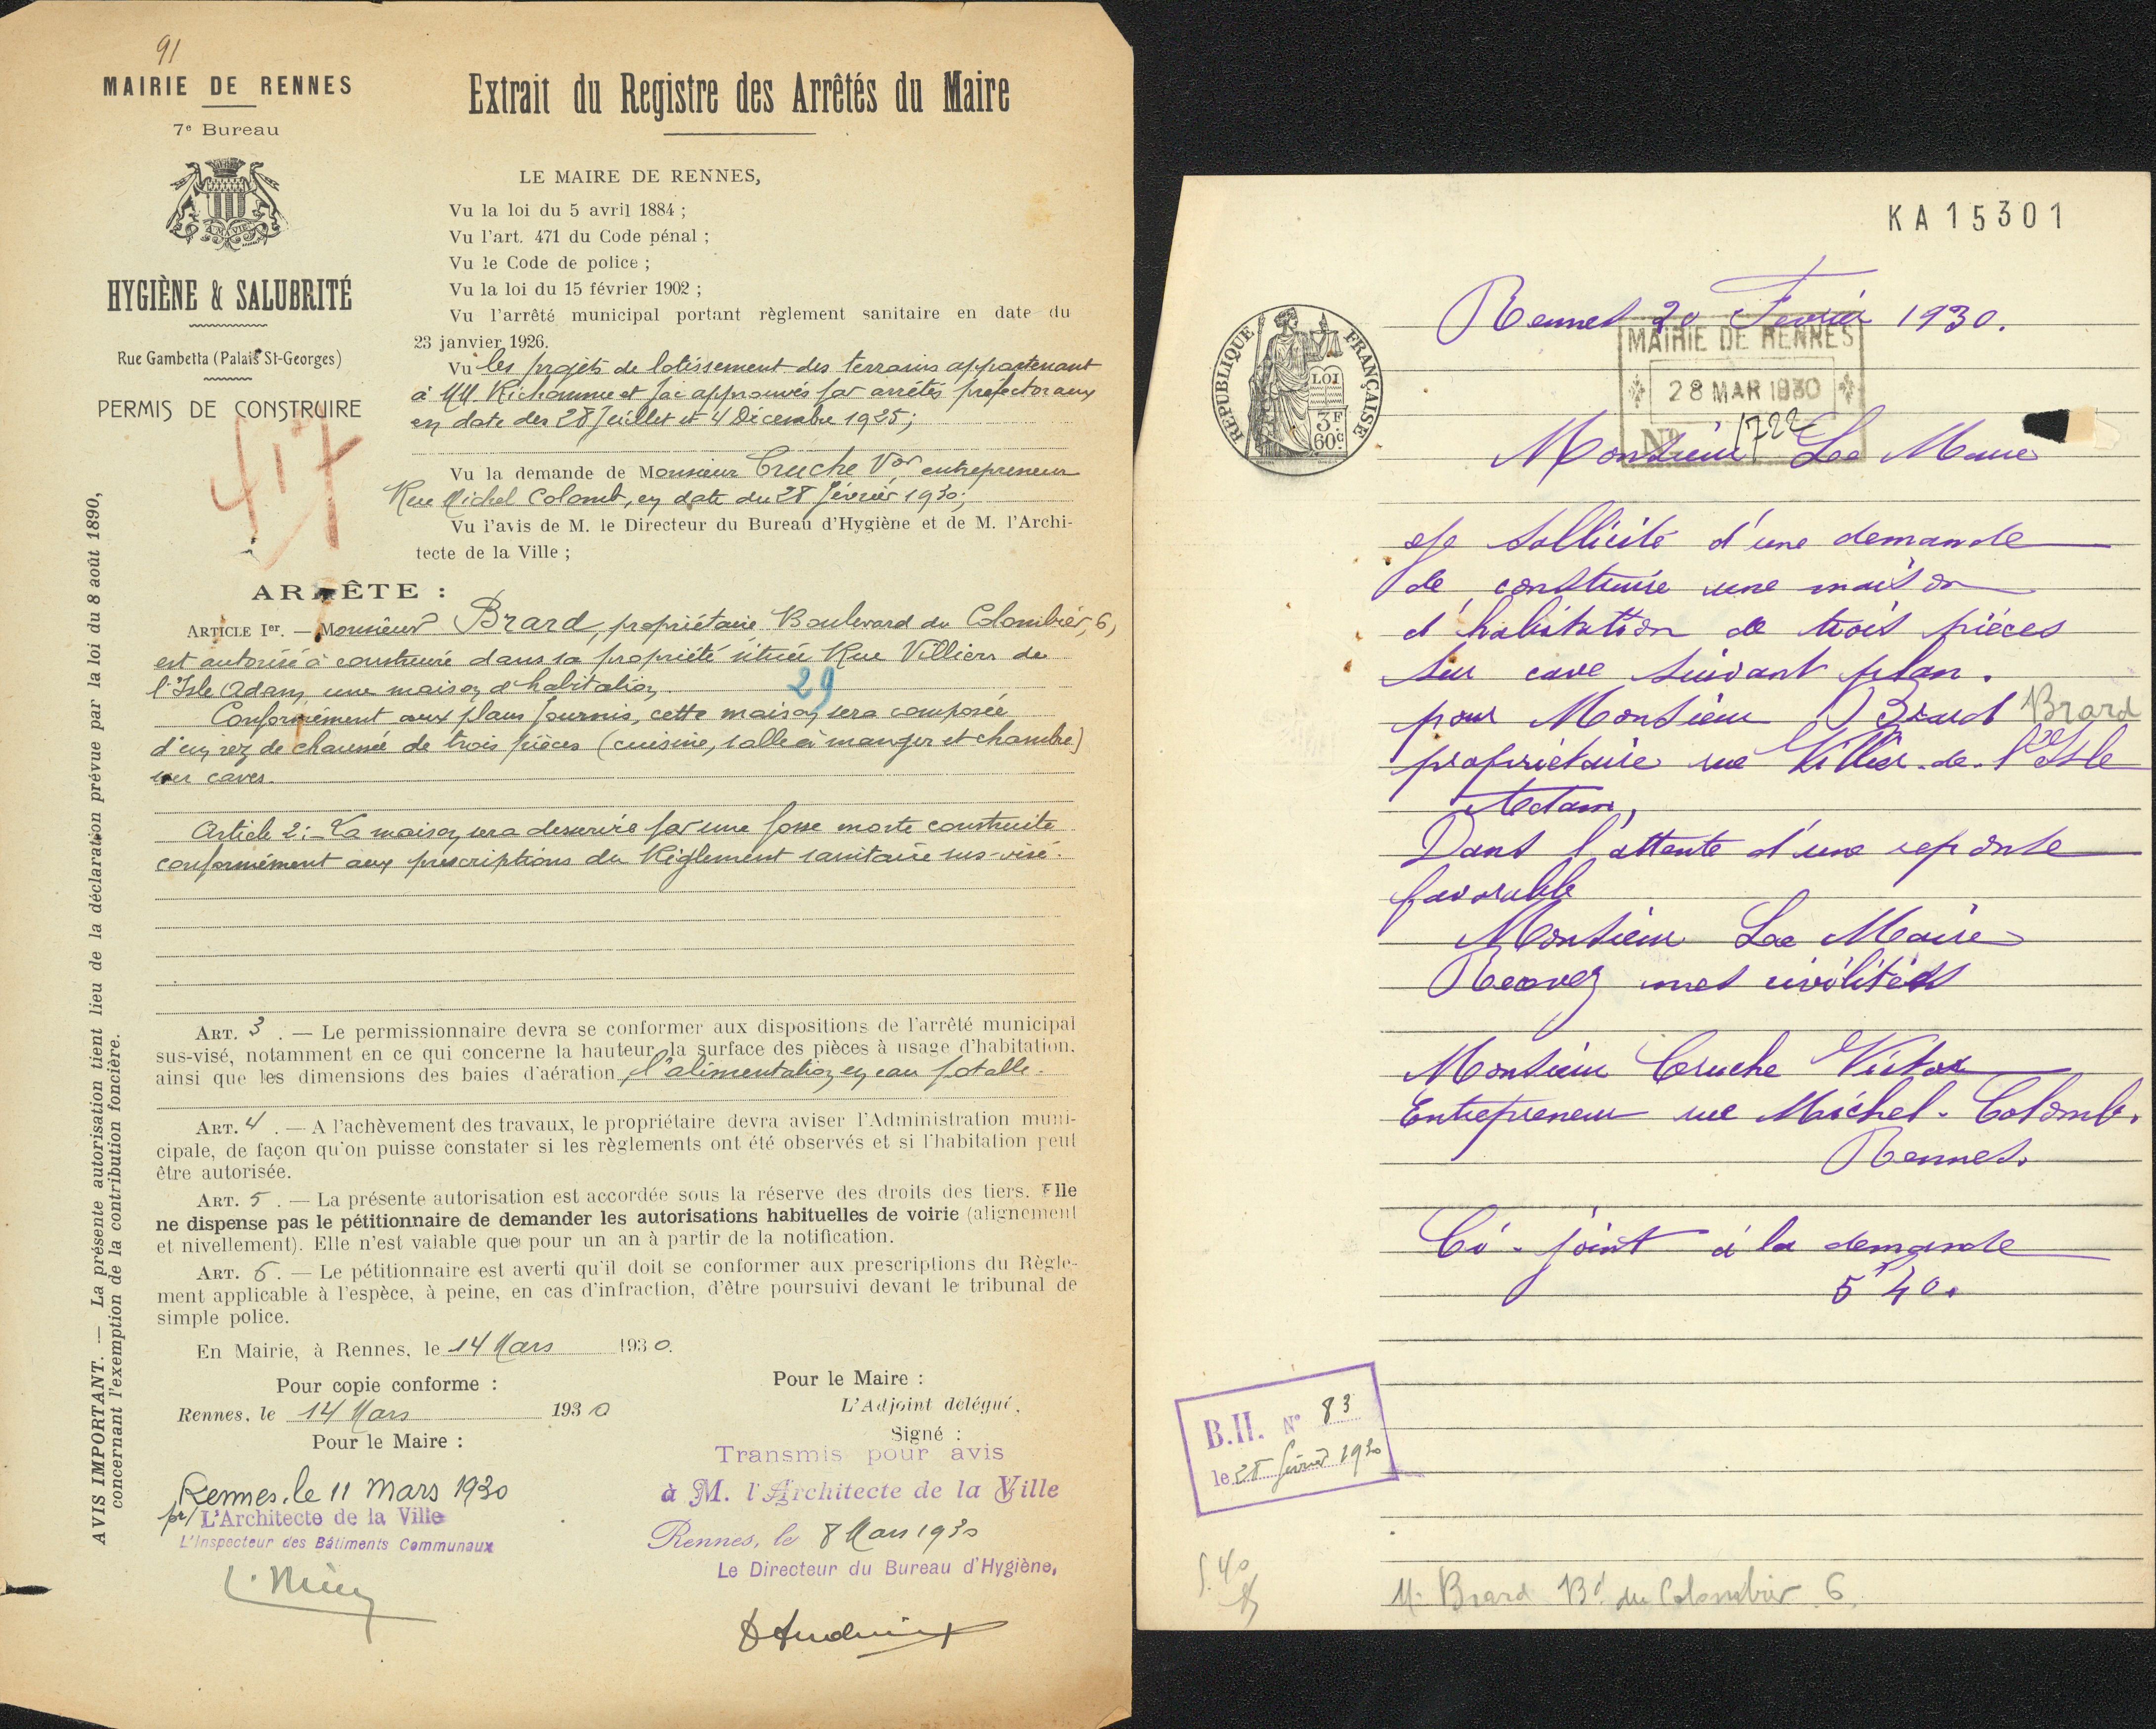 91
MAIRIE DE RENNES
7e Bureau
HYGIÈNE & SALUBRITÉ
Rue Gambetta (Palais St-Georges)
PERMIS DE CONSTRUIRE
417
AVIS IMPORTANT. — La présente autorisation tient lieu de la déclaration prévue par la loi du 8 août 1890,
concernant l'exemption de la contribution foncière.
Extrait du Registre des Arrêtés du Maire
LE MAIRE DE RENNES,
Vu la loi du 5 avril 1884 ;
Vu l'art. 471 du Code pénal ;
Vu le Code de police ;
Vu la loi du 15 février 1902 ;
Vu l'arrêté municipal portant règlement sanitaire en date du
23 janvier 1926.
Vu les projets de lotissement des terrains appartenant
à MM. Richomme et Jai approuvés par arrêtés préfectoraux
en date des 28 Juillet et 4 Décembre 1925;
Vu la demande de Monsieur Cruche Vor entrepreneur
Rue Michel Colomb, en date du 28 février 1930;
Vu l'avis de M. le Directeur du Bureau d'Hygiène et de M. l'Archi-
tecte de la Ville ;
ARRÊTE :
ARTICLE Ier. — Monsieur Brard, propriétaire Boulevard du Colombier, 6,
est autorisé à construire dans sa propriété située Rue Villiers de
l'Isle Adam une maison d'habitation.
29
Conformément aux plans fournis, cette maison sera composée
d'un rez de chaussée de trois pièces (cuisine, salle à manger et chambre)
sur caves.
Article 2:- La maison sera desservie par une fosse morte construite
conformément aux prescriptions du Règlement sanitaire sus-visé.
ART. 3. — Le permissionnaire devra se conformer aux dispositions de l'arrêté municipal
sus-visé, notamment en ce qui concerne la hauteur, la surface des pièces à usage d'habitation,
ainsi que les dimensions des baies d'aération, l'alimentation en eau potable.
ART. 4. — A l'achèvement des travaux, le propriétaire devra aviser l'Administration muni-
cipale, de façon qu'on puisse constater si les règlements ont été observés et si l'habitation peut
être autorisée.
ART. 5. — La présente autorisation est accordée sous la réserve des droits des tiers. Elle
ne dispense pas le pétitionnaire de demander les autorisations habituelles de voirie (alignement
et nivellement). Elle n'est valable que pour un an à partir de la notification.
ART. 6. — Le pétitionnaire est averti qu'il doit se conformer aux prescriptions du Règle-
ment applicable à l'espèce, à peine, en cas d'infraction, d'être poursuivi devant le tribunal de
simple police.
En Mairie, à Rennes, le 14 Mars 1930.
Pour copie conforme :
Rennes, le 14 Mars 1930
Pour le Maire :
Pour le Maire :
L'Adjoint délégué,
Signé :
Rennes, le 11 mars 1930
pr/ L'Architecte de la Ville
L'Inspecteur des Bâtiments Communaux
Transmis pour avis
à M. l'Architecte de la Ville
Rennes, le 8 Mars 1930
Le Directeur du Bureau d'Hygiène,
KA15301
REPUBLIQUE FRANÇAISE
LOI
3F
60c
Rennes 20 Fevrier 1930.
MAIRIE DE RENNES
28 MAR 1930
No 1722
Monsieur Le Maire
Je sollicite d'une demande
de construire une maison
d'habitation de trois pièces
sur cave suivant plan.
pour Monsieur Brard Brard
propriétaire rue Villier-de-l'Isle
Adam,
Dans l'attente d'une reponse
favorable
Monsieur Le Maire
Recevez mes civilités
Monsieur Cruche Victor
Entrepreneur rue Michel-Colomb.
Rennes.
Ci-joint à la demande
5f40.
B.H. N° 83
le 28 février 1930
5.40
M. Brard Bd du Colombier 6.